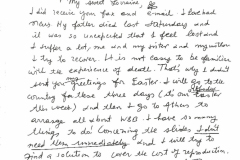 My sweet Loraine,
I did receive your fax and email I touched
Mars. My father died last Saturday and it
was so unexpected that I feel lost and
I suffer a lot, me and my sister and my mother
I try to recover. It is not easy to be familiar
with the experience of death. That's why I didn't
send you greetings for Easter. I will go to the
country for these three days (it's our Easter
this week) and then I go to Athens, to
arrange all about W&D. I have so many
things to do! Concerning the slides I don't
need them immediately and I will try to
find a solution to cover the cost of reproduction.